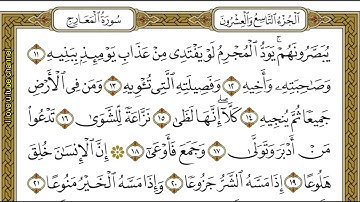 الجزء التاسع والعشرون
سورة المعارج
يُبَصَّرُونَهُمْ ۚ يَوَدُّ ٱلْمُجْرِمُ لَوْ يَفْتَدِى مِنْ عَذَابِ يَوْمِئِذٍۭ بِبَنِيهِ ١١
وَصَـٰحِبَتِهِۦ وَأَخِيهِ ١٢ وَفَصِيلَتِهِ ٱلَّتِى تُـْٔوِيهِ ١٣ وَمَن فِى ٱلْأَرْضِ
جَمِيعًا ثُمَّ يُنجِيهِ ١٤ كَلَّآ ۖ إِنَّهَا لَظَىٰ ١٥ نَزَّاعَةً لِّلشَّوَىٰ ١٦ تَدْعُوا۟
مَنْ أَدْبَرَ وَتَوَلَّىٰ ١٧ وَجَمَعَ فَأَوْعَىٰٓ ١٨ ۞ إِنَّ ٱلْإِنسَـٰنَ خُلِقَ
هَلُوعًا ١٩ إِذَا مَسَّهُ ٱلشَّرُّ جَزُوعًا ٢٠ وَإِذَا مَسَّهُ ٱلْخَيْرُ مَنُوعًا ٢١